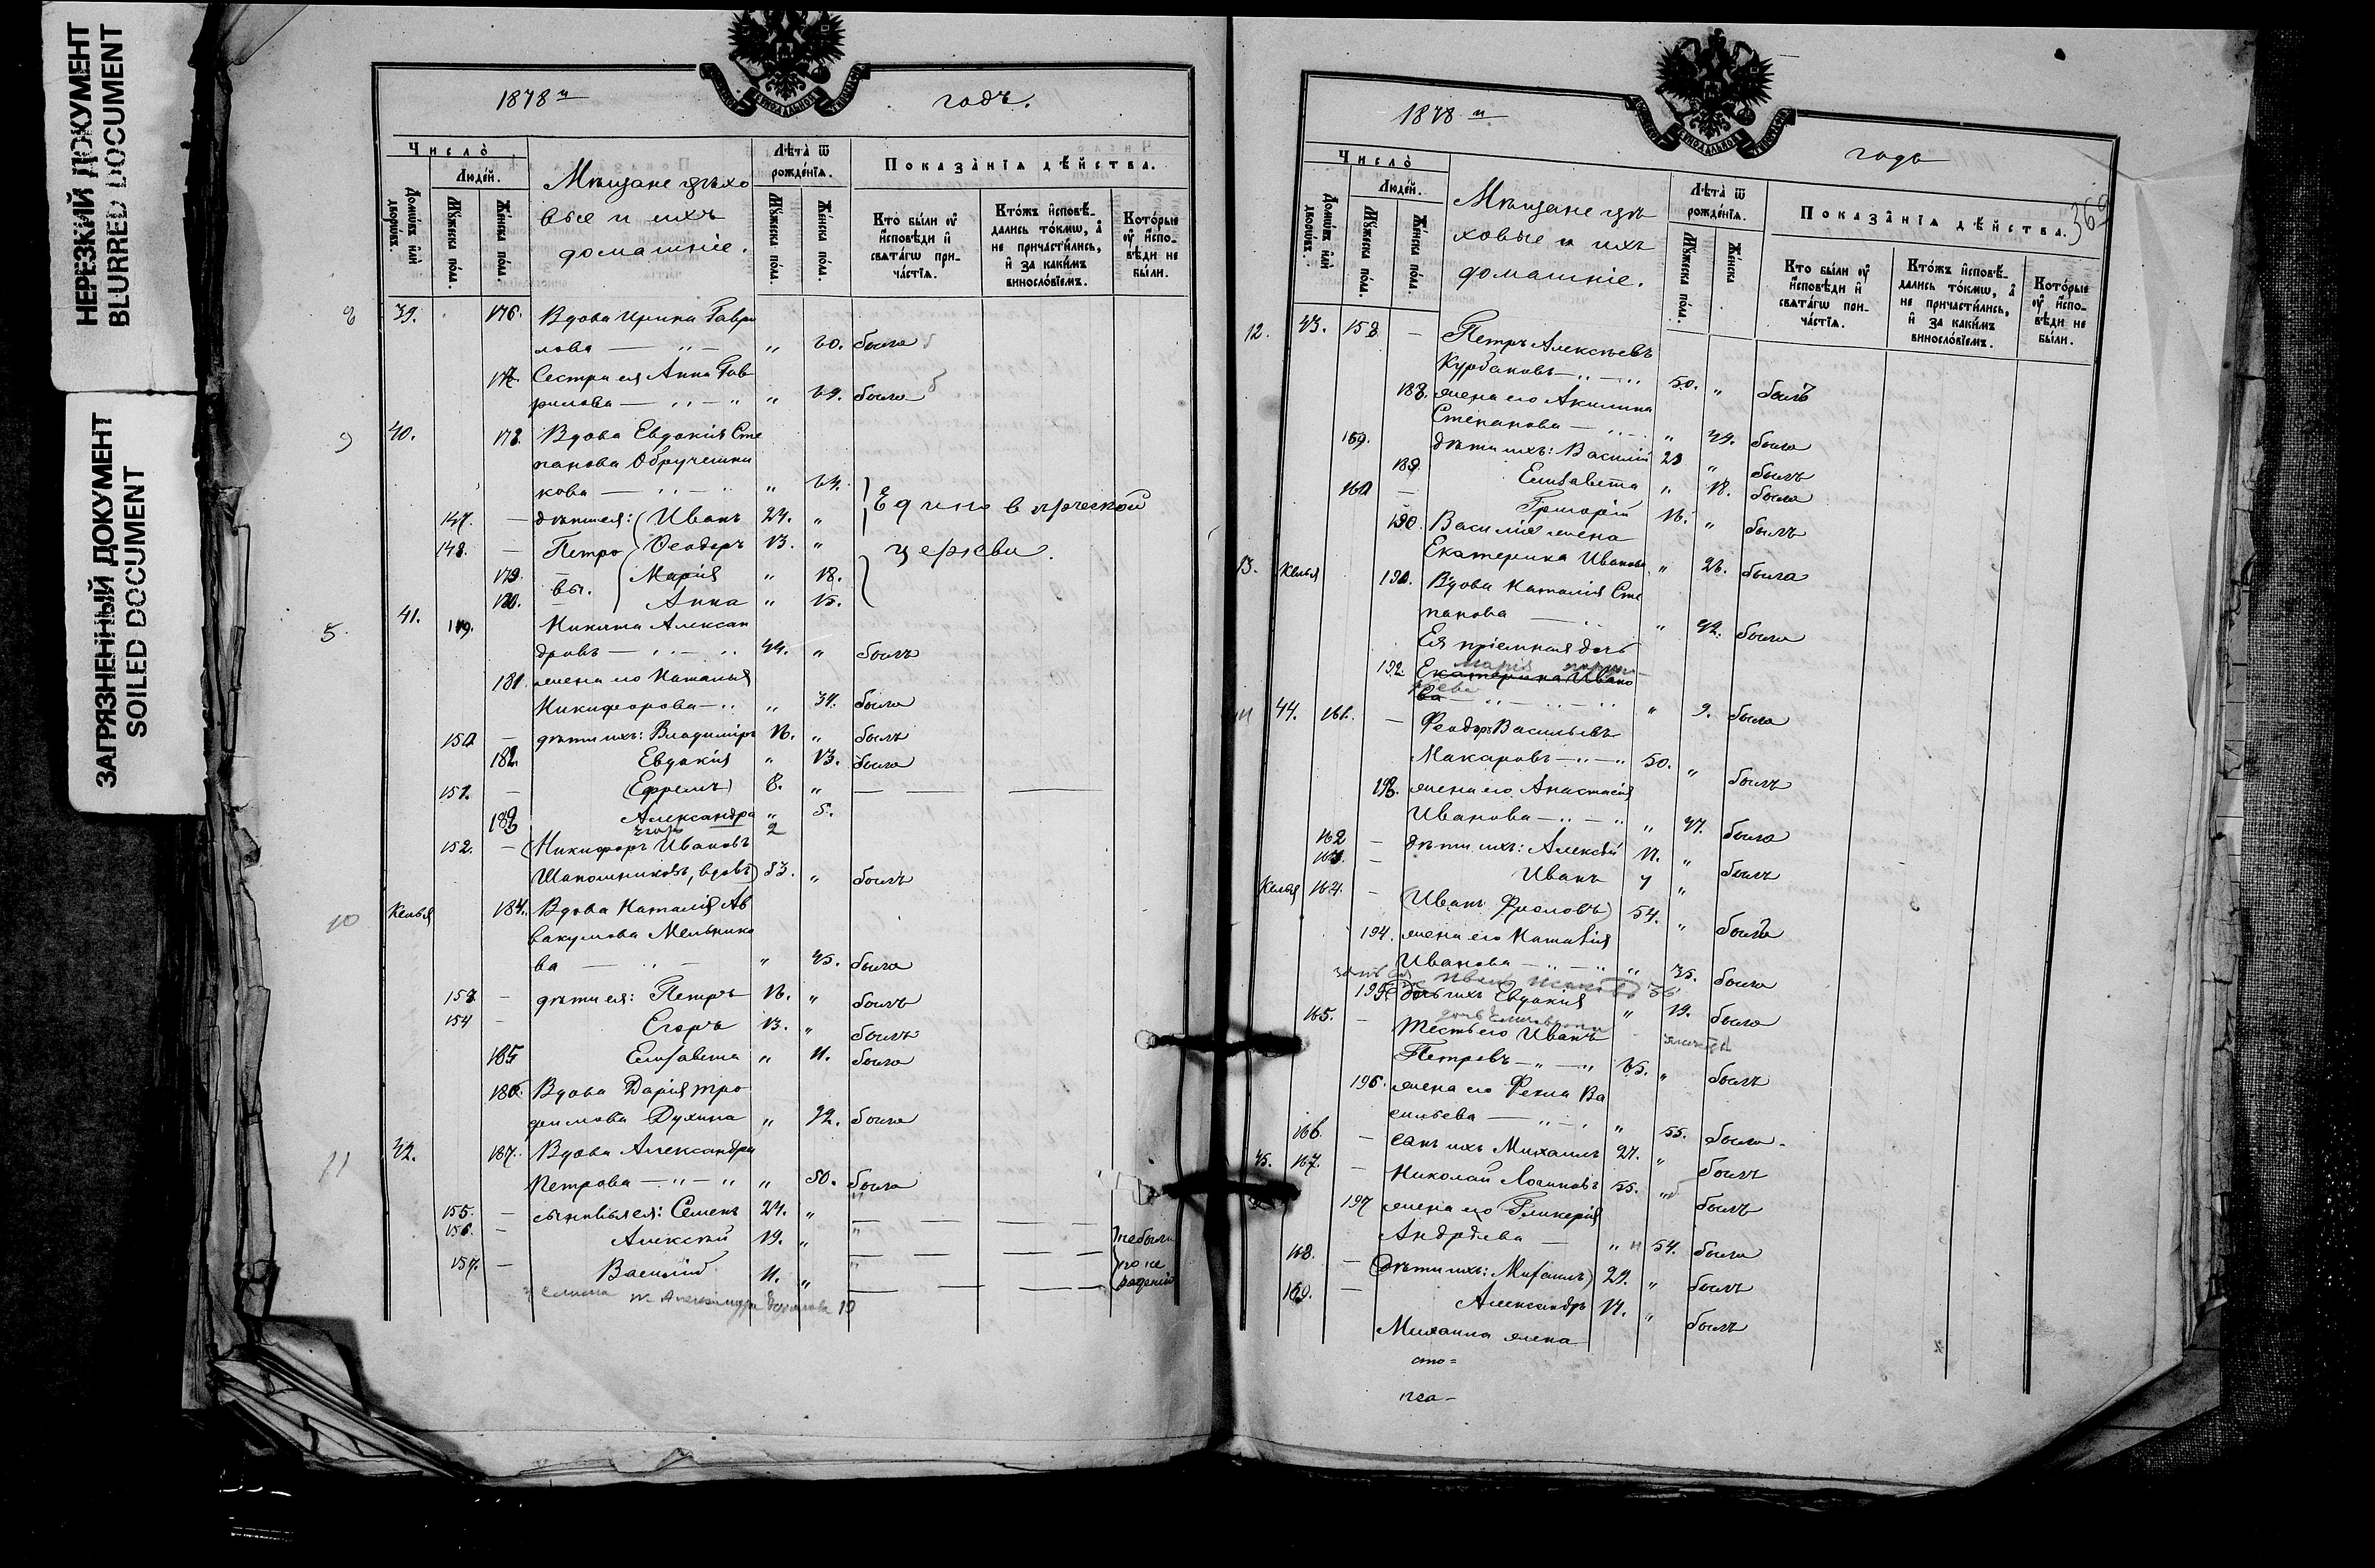 НЕРЕЗКИЙ ДОКУМЕНТ
BLURRED DOCUMENT
ЗАГРЯЗНЕННЫЙ ДОКУМЕНТ
SOILED DOCUMENT
1878 й годъ.
Число̀
Людє́й.
Домѡ́въ и҆лѝ дворѡ́въ.
Мꙋ́жеска по́ла.
Же́нска по́ла.
Мѣщане цѣхо
вые и ихъ
домашніе.
Лѣта̀ ѿ рожде́нїѧ.
Мꙋ́жеска по́ла.
Же́нска по́ла.
Показа́нїѧ дѣ́йства.
Кто̀ бы́ли ᲂу҆ и҆́сповѣди и҆ свѧта́гѡ прича́стїѧ.
Кто́жъ и҆сповѣ́дались то́кмѡ, а҆ не причасти́лись, и҆ за каки́мъ винослѡ́вїемъ.
Кото́рые ᲂу҆ и҆́сповѣди не бы́ли.
8 39. 176. Вдова Ирина Гаври
лова — „ — „ 60. была
177. Сестра ея Анна Гав
рилова — „ — „ „ 69. была
9 40. 178. Вдова Евдокія Сте
панова Обручешни
кова — „ — „ „ 64.
147. — дѣти ея: Иванъ 24. „ Единовѣрческой
148. — Петро Ѳеодоръ 13. „ церкви.
179. — вы. Марія „ 18.
180. — Анна „ 15.
5. 41. 149. Никита Алексан
дровъ — „ — „ 44. „ былъ
181. жена его Наталья
Никифорова — „ „ 34. была
150 — дѣти ихъ: Владиміръ 16. „ былъ
182. Евдокія „ 13. была
151. — (Ефремъ) 8. „ — — —
183 Александра „ 5.
152. — (Никифоръ Ивановъ
Шапошниковъ, вдовъ) 83. „ былъ
10 Келья 184. Вдова Наталія Ав
вакумова Мельнико
ва — „ — „ 45. была
153 — дѣти ея: Петръ 16. „ былъ
154 — Егоръ 13. „ былъ
185 Елисавета „ 11. была
186. Вдова Дарія Тро
фимова Духина „ 92. была
11 42. 187. Вдова Александра
Петрова — „ — „ „ 50. была
155. — сыновья ея: Семенъ 24. „ — — — —
156. — Алексѣй 19. „ — — — — небыли
157. — Василій 11. „ — — — по не
радению
ж Александра 19
1878 й годъ
369
Число̀
Людє́й.
Домѡ́въ и҆лѝ дворѡ́въ.
Мꙋ́жеска по́ла.
Же́нска по́ла.
Мѣщане цѣ
ховые и ихъ
домашніе.
Лѣта̀ ѿ рожде́нїѧ.
Мꙋ́жеска по́ла.
Же́нска
Показа́нїѧ дѣ́йства.
Кто̀ бы́ли ᲂу҆ и҆́сповѣди и҆ свѧта́гѡ прича́стїѧ.
Кто́жъ и҆сповѣ́дались то́кмѡ, а҆ не причасти́лись, и҆ за каки́мъ винослѡ́вїемъ.
Кото́рые ᲂу҆ и҆́сповѣди не бы́ли.
12. 43. 158 — Петръ Алексѣевъ
Курбаковъ — „ — „ 50. „ былъ
188. жена его Акилина
Степанова — „ — „ 44. была
159. дѣти ихъ: Василій 23 „ былъ
189. Елисавета „ 18. была
160 — Григорій 16. „ былъ
190. Василія жена
Екатерина Иванова „ 26. была
13. Келья 191. Вдова Наталія Сте
панова — „ „ 42. была
Ея пріемная дочь
192. Екатерина Ивано
Марія
ва — „ — „ — „ „ 9. была
44. 161. — Ѳеодоръ Васильевъ
Макаровъ — „ — „ 50. „ былъ
193. жена его Анастасія
Иванова — „ — „ „ 47. была
162 — дѣти ихъ: Алексѣй 17. „ былъ
163. — Иванъ 7 „
Келья 164. — (Иванъ Фроловъ) 54. „ былъ
194. жена его Наталія
Иванова — „ — „ „ 35. была
Иванъ 36
195 дочь ихъ Евдокія „ 19. была
165. — тесть его Иванъ
Петровъ — „ — „ 65. „ былъ
196. жена его Фекла Ва
сильева — „ — „ „ 55. была.
166. — сынъ ихъ Михаилъ 24. „ былъ
45. 167. — Николай Логиновъ 55. „ былъ
197 жена его Гликерія
Андреева — „ 54. была
168. — (дѣти ихъ: Михаилъ) 29. „ былъ
169. — Александръ 17. „ былъ
Михаила жена
сто=
пса-